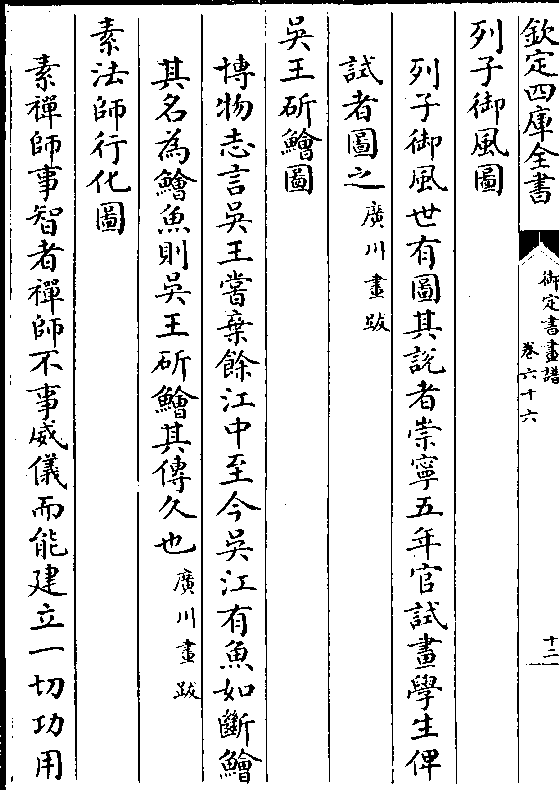 欽定四庫全書
御定書畫譜
卷六十六
十二
列子御風圖
列子御風世有圖其説者崇寧五年官試畫學生俾
試者圖之廣川畫跋
吳王斫鱠圖
博物志言吳王嘗棄餘江中至今吳江有魚如斷鱠
其名為鱠魚則吳王斫鱠其傳久也廣川畫跋
素法師行化圖
素禪師事智者禪師不事威儀而能建立一切功用